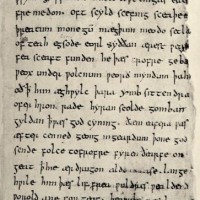 fre medon. oft scyld scefing sceaþe
þreatum monegū mægþum meodo setla
of teah egsode eorl syððan ærest wear
fea sceaft funden he þæs frofre geba
weox under wolcnum weorð myndum þah
þ him æghwylc þara ymb sittendra
ofer hron rade hyran scolde gomban
gyldan þ wæs god cyning. ðæm eafera wæs
æfter cenned geong in geardum þone god
sende folce tofrofre fyren ðearfe on
geat þ hie ær drugon aldor ase. lange
hwile him þæs lif frea wuldres wealdend
worold are for geaf.